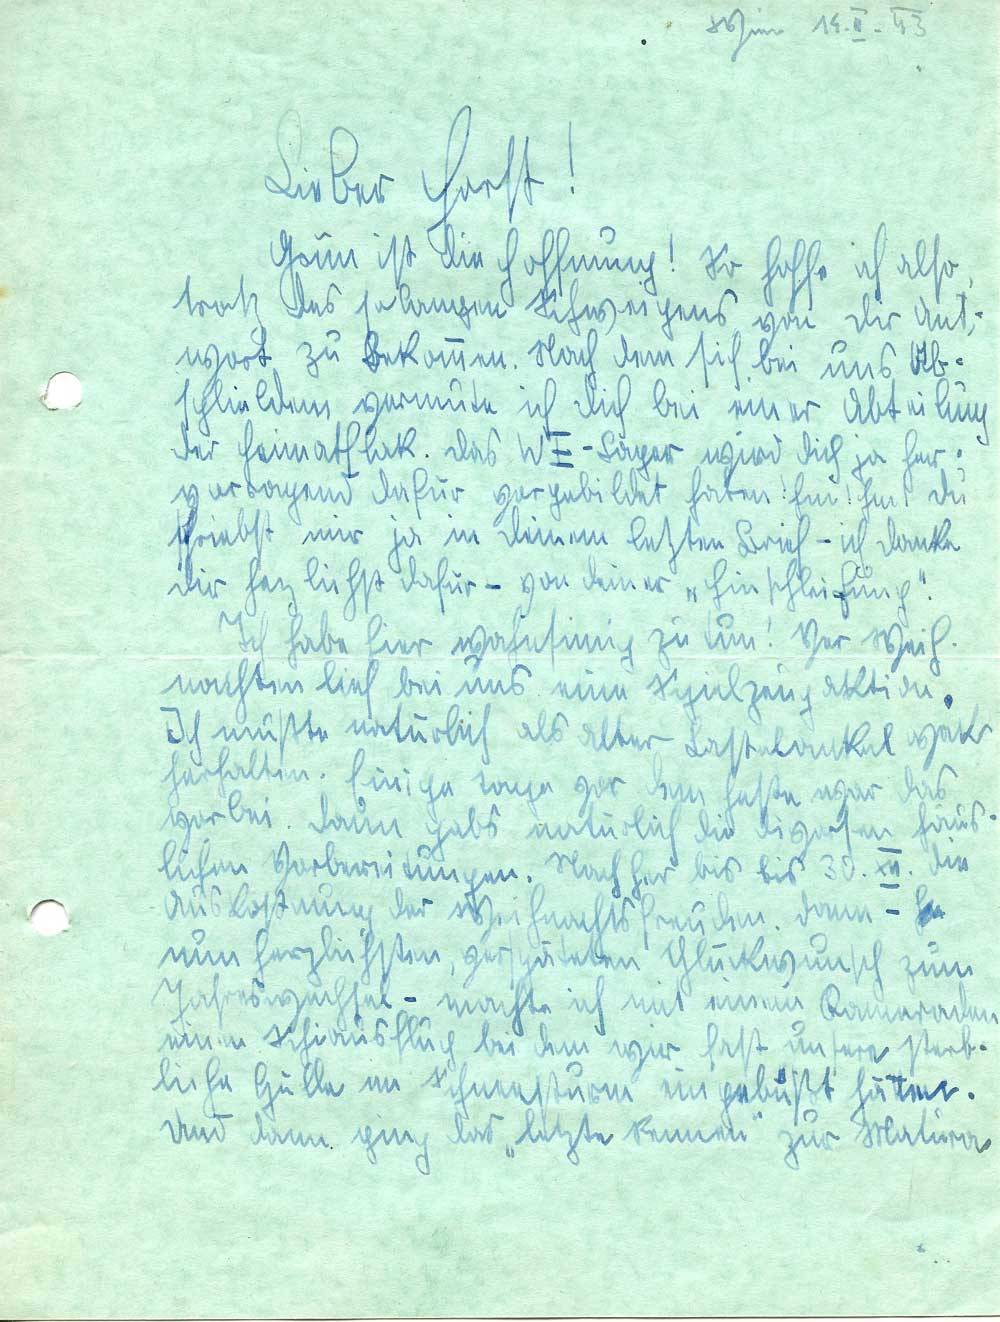 Wien 14.II.43
Lieber Horst!
Grün ist die Hoffnung! So hoffe ich also,
trotz des so langen Schweigens von dir Ant-
wort zu bekommen. Nach dem sich bei uns Ab-
schließenden vermute ich dich bei einer Abteilung
der Heimatflak. Das WE-Lager wird dich ja her-
vorragend dafür vorgebildet haben! Hm! Hm! Du
schriebst mir ja in deinem letzten Brief – ich danke
dir herzlichst dafür – von deiner „Einschleifung".
Ich habe hier wahnsinnig zu tun! Vor Weih-
nachten lief bei uns eine Spielzeugaktion.
Ich mußte natürlich als alter Bastelonkel
herhalten. Einige Tage vor dem Feste war das
vorbei. Dann gabs natürlich die diversen häus-
lichen Vorbereitungen. Nachher bis bis 30.XII. die
Auskostung der Weihnachtsfreuden. Dann –
nun herzlichsten, verspäteten Glückwunsch zum
Jahreswechsel – machte ich mit einem Kameraden
einen Schiausflug bei dem wir fast unsere sterb-
liche Hülle im Schneesturm eingebüßt hätten.
Und dann ging das „letzte Rennen" zur Matura